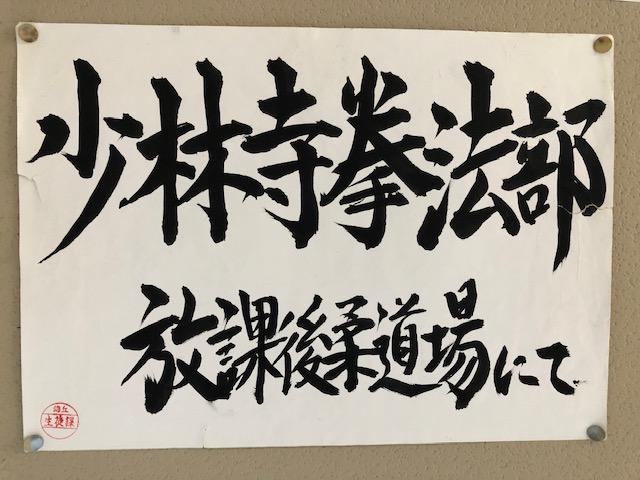 少林寺拳法部
放課後柔道場にて